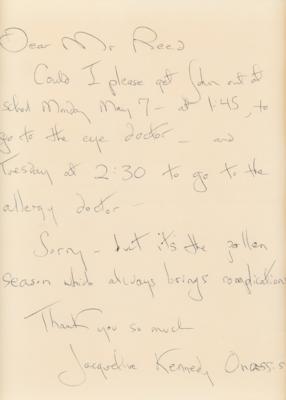 Dear Mr Reed
Could I please get John out of
school Monday May 7 - at 1:45, to
go to the eye doctor - and
Tuesday at 2:30 to go to the
allergy doctor -
Sorry - but it's the pollen
season which always brings complications
Thank you so much
Jacqueline Kennedy Onassis